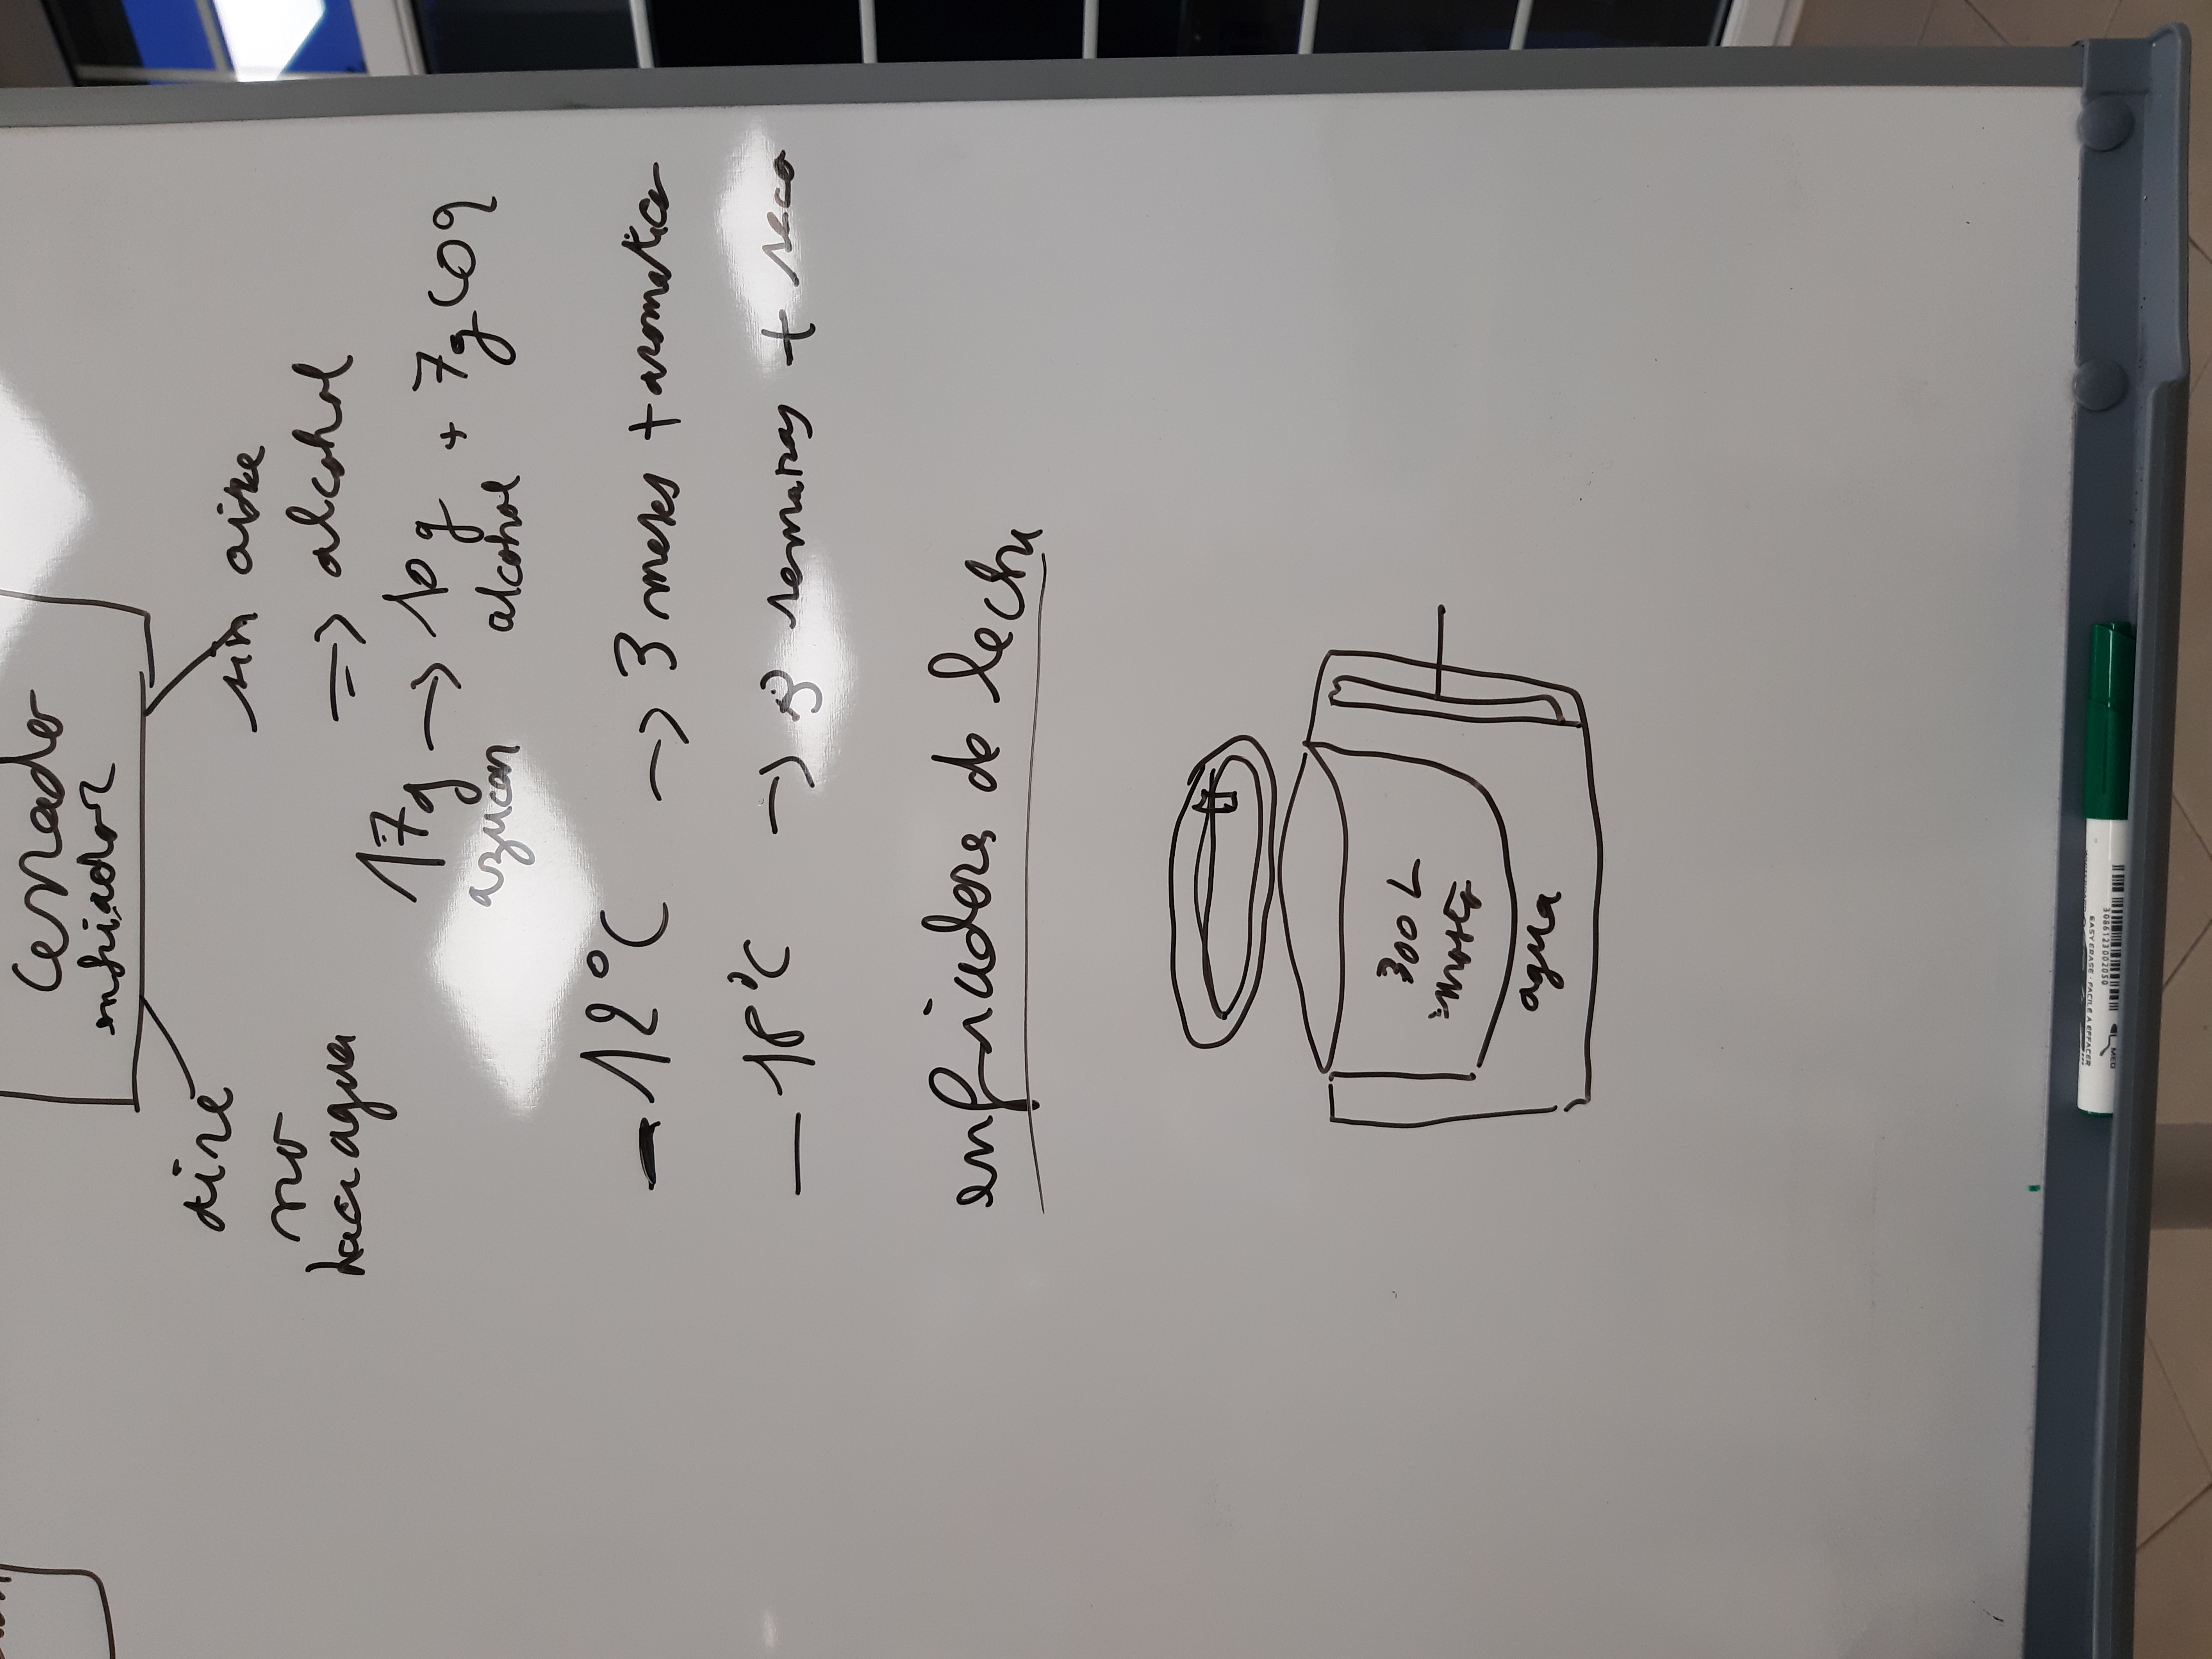 Cerrado
enfriador
aire
sin aire
no
hace agua
=> alcohol
17g -> 10 g + 7 g CO2
azucar
alcohol
- 12°C -> 3 meses + aromatico
- 18°C -> 3 semanas + seco
enfriadores de leche
300 L
mosto
agua
EASY ERASE - FACILE A EFFACER
3086123002050